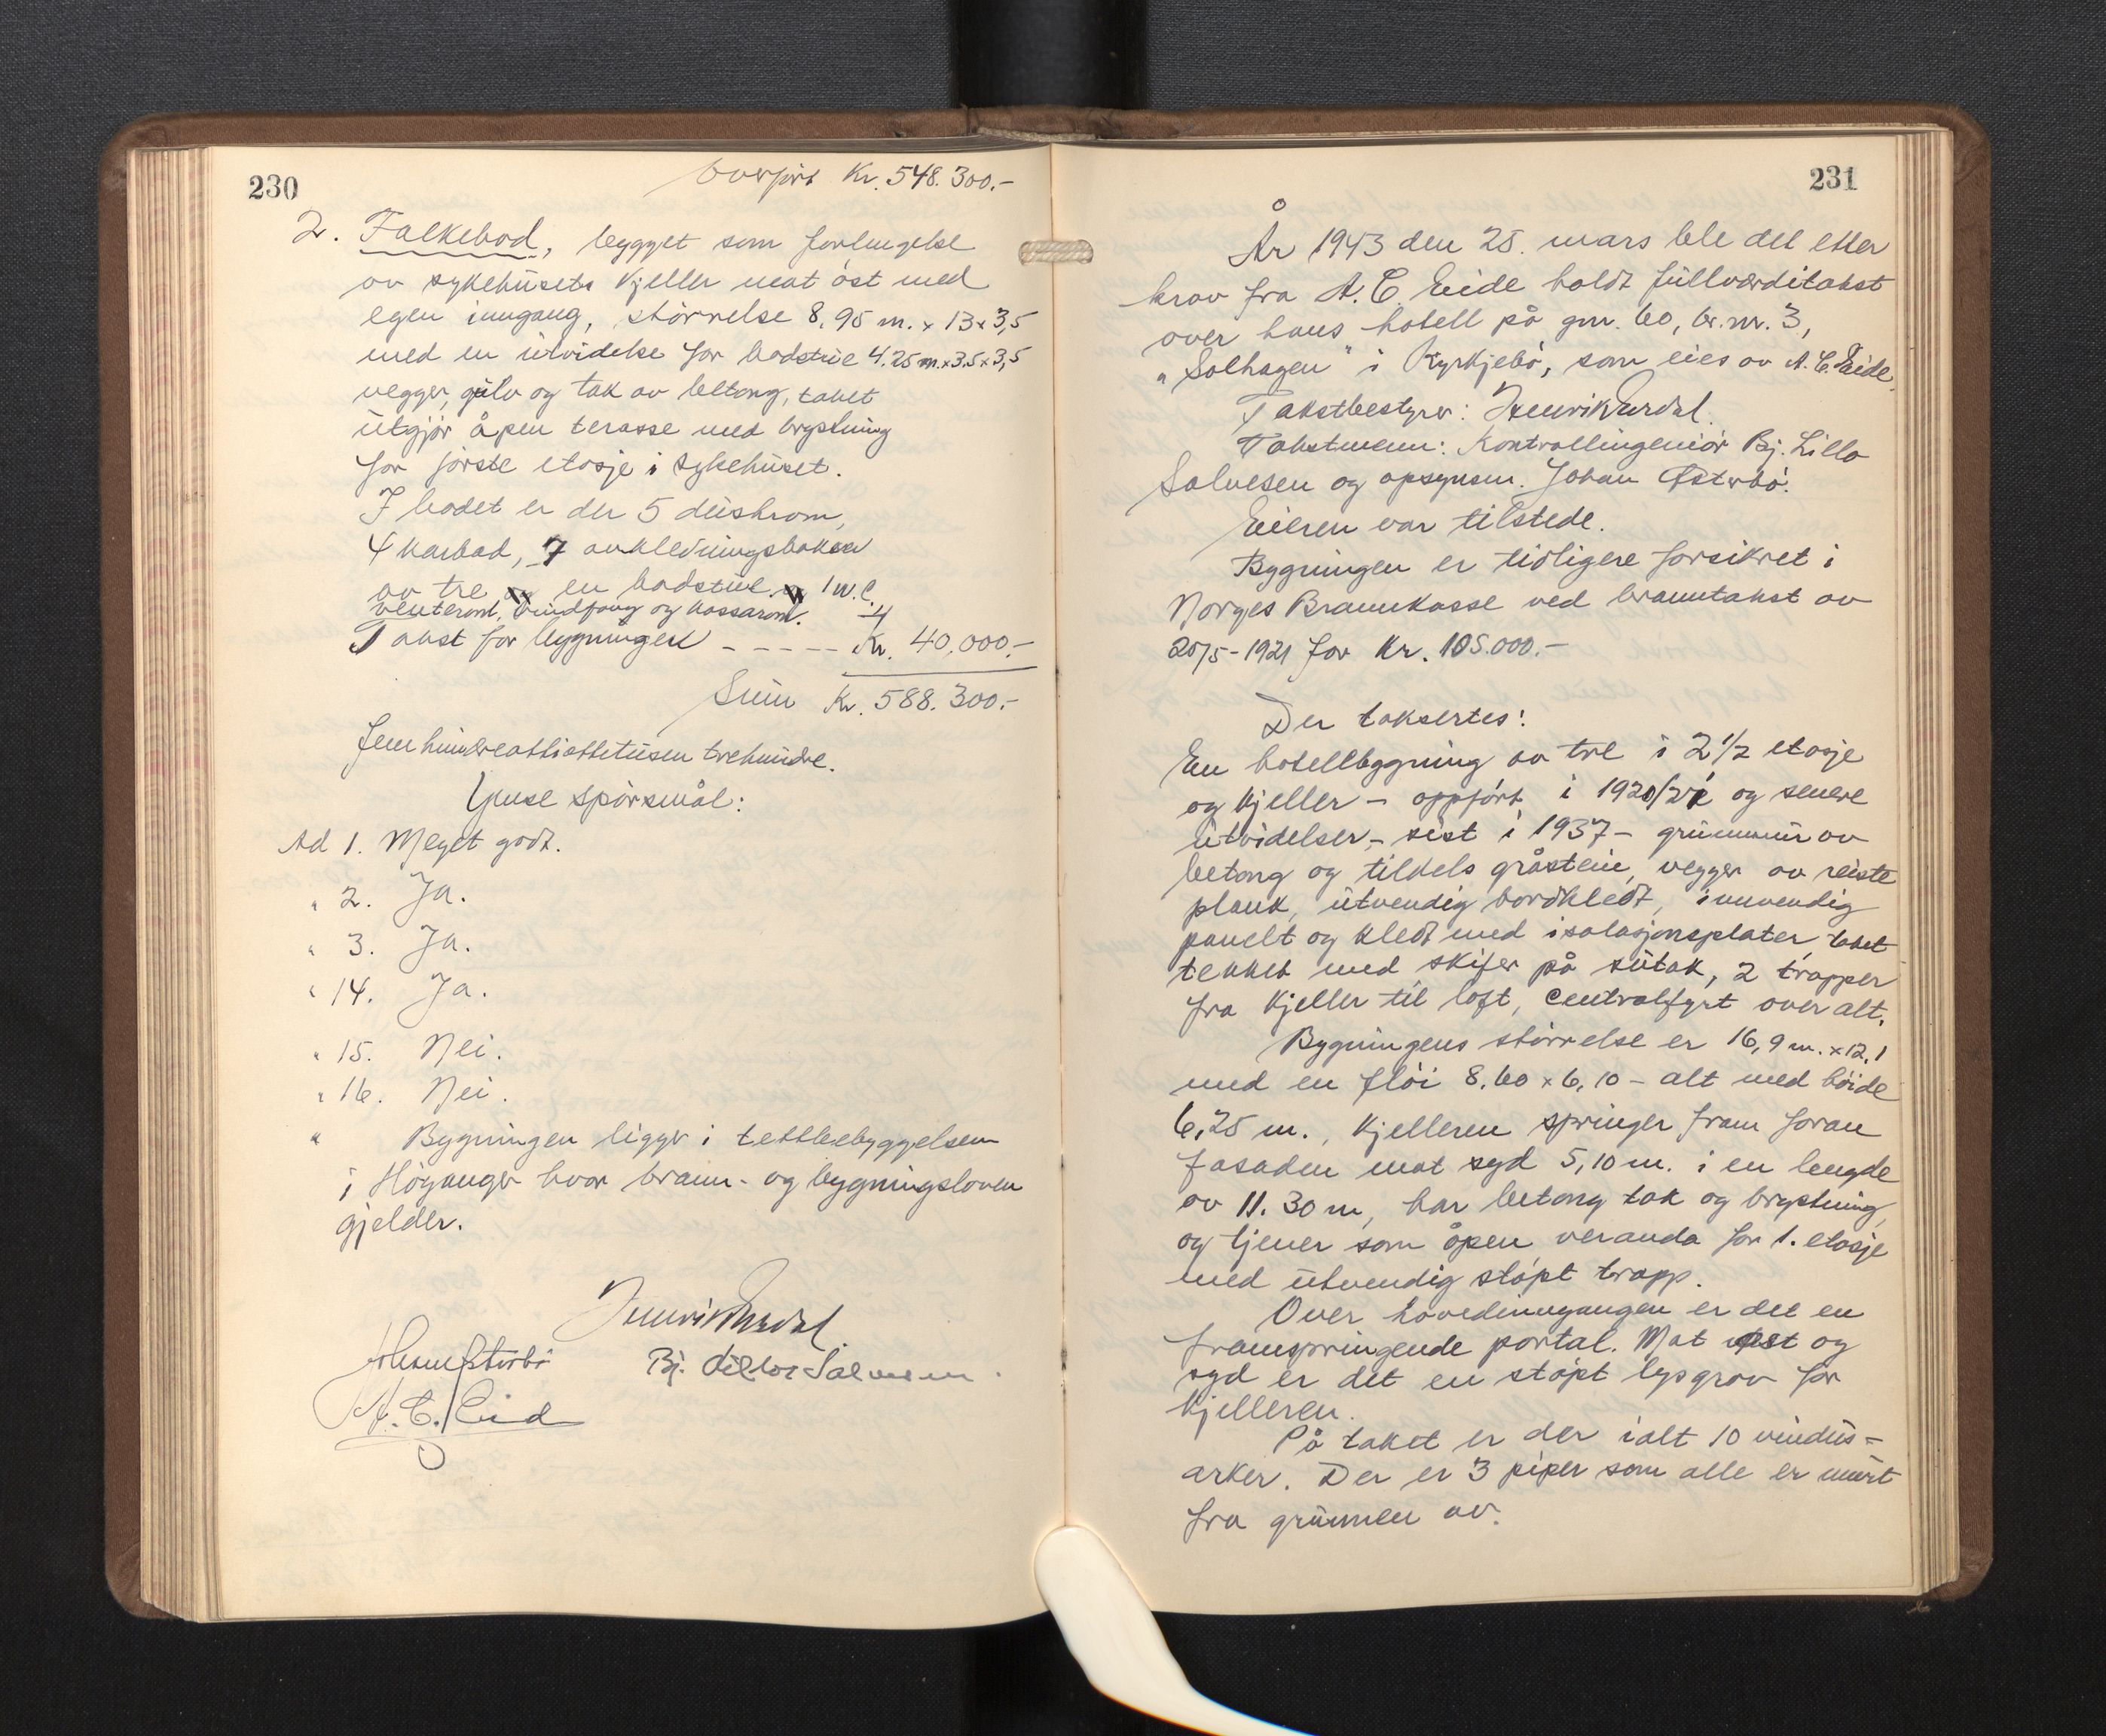 230
Overført Kr. 548.300.-
2. Falkebad, bygget som forlengelse
av sykehusets kjeller mot øst med
egen inngang, størrelse 8,95 m. x 13 x 3,5
med en utvidelse for badstue 4.25 m. x 3.5 x 3,5
vegger, gulv og tak av betong, taket
utgjør åpen terasse med brystning
for første etasje i sykehuset.
I badet er der 5 dusjrom,
4 karbad, 7 avkledningsbokser
av tre en badstue. 1 w.c.
venterom, vindfang og kasserom.
Takst for bygningen - - - - - Kr. 40,000.-
Sum Kr. 588.300.-
Femhundreottiottetusen trehundre.
spørsmål:
Ad 1. Meget godt.
" 2. Ja.
" 3. Ja.
" 14. Ja.
" 15. Nei.
" 16. Nei.
" Bygningen ligger i tettbebyggelsen
i Høyanger hvor brann- og bygningsloven
gjelder.
Bj. Lillo Salvesen.
A. C. Eide
231
År 1943 den 25. mars ble det etter
krav fra A. C. Eide holdt fullverditakst
over hans hotell på gnr. 60, br.nr. 3,
"Solhagen" i Kyrkjebø, som eies av A. C. Eide.
Takstbestyrer: Henrik
Takstmenn: Kontrollingeniør Bj. Lillo
Salvesen og opsynsm. Johan Østerbø.
Eieren var tilstede.
Bygningen er tidligere forsikret i
Norges Brannkasse ved branntakst av
20/5-1921 for Kr. 105.000.-
Der taksertes:
En hotellbygning av tre i 2 1/2 etasje
og kjeller - oppført i 1920/21 og senere
utvidelser, - sist i 1937 - grunnmur av
betong og tildels gråstein, vegger av reiste
plank, utvendig bordkledt, innvendig
panelt og kledt med isolasjonsplater, taket
tekket med skifer på sutak, 2 trapper
fra kjeller til loft, centralfyrt over alt.
Bygningens størrelse er 16,9 m. x 12,1
med en fløi 8.60 x 6,10 - alt med høide
6,25 m., kjelleren springer fram foran
fasaden mot syd 5,10 m. i en lengde
av 11.30 m, har betong tak og brystning,
og tjener som åpen veranda for 1. etasje
med utvendig støpt trapp.
Over hovedinngangen er det en
framspringende portal. Mot og
syd er det en støpt lysgrav for
kjelleren.
På taket er der ialt 10 vindus-
arker. Der er 3 piper som alle er murt
fra grunnen av.